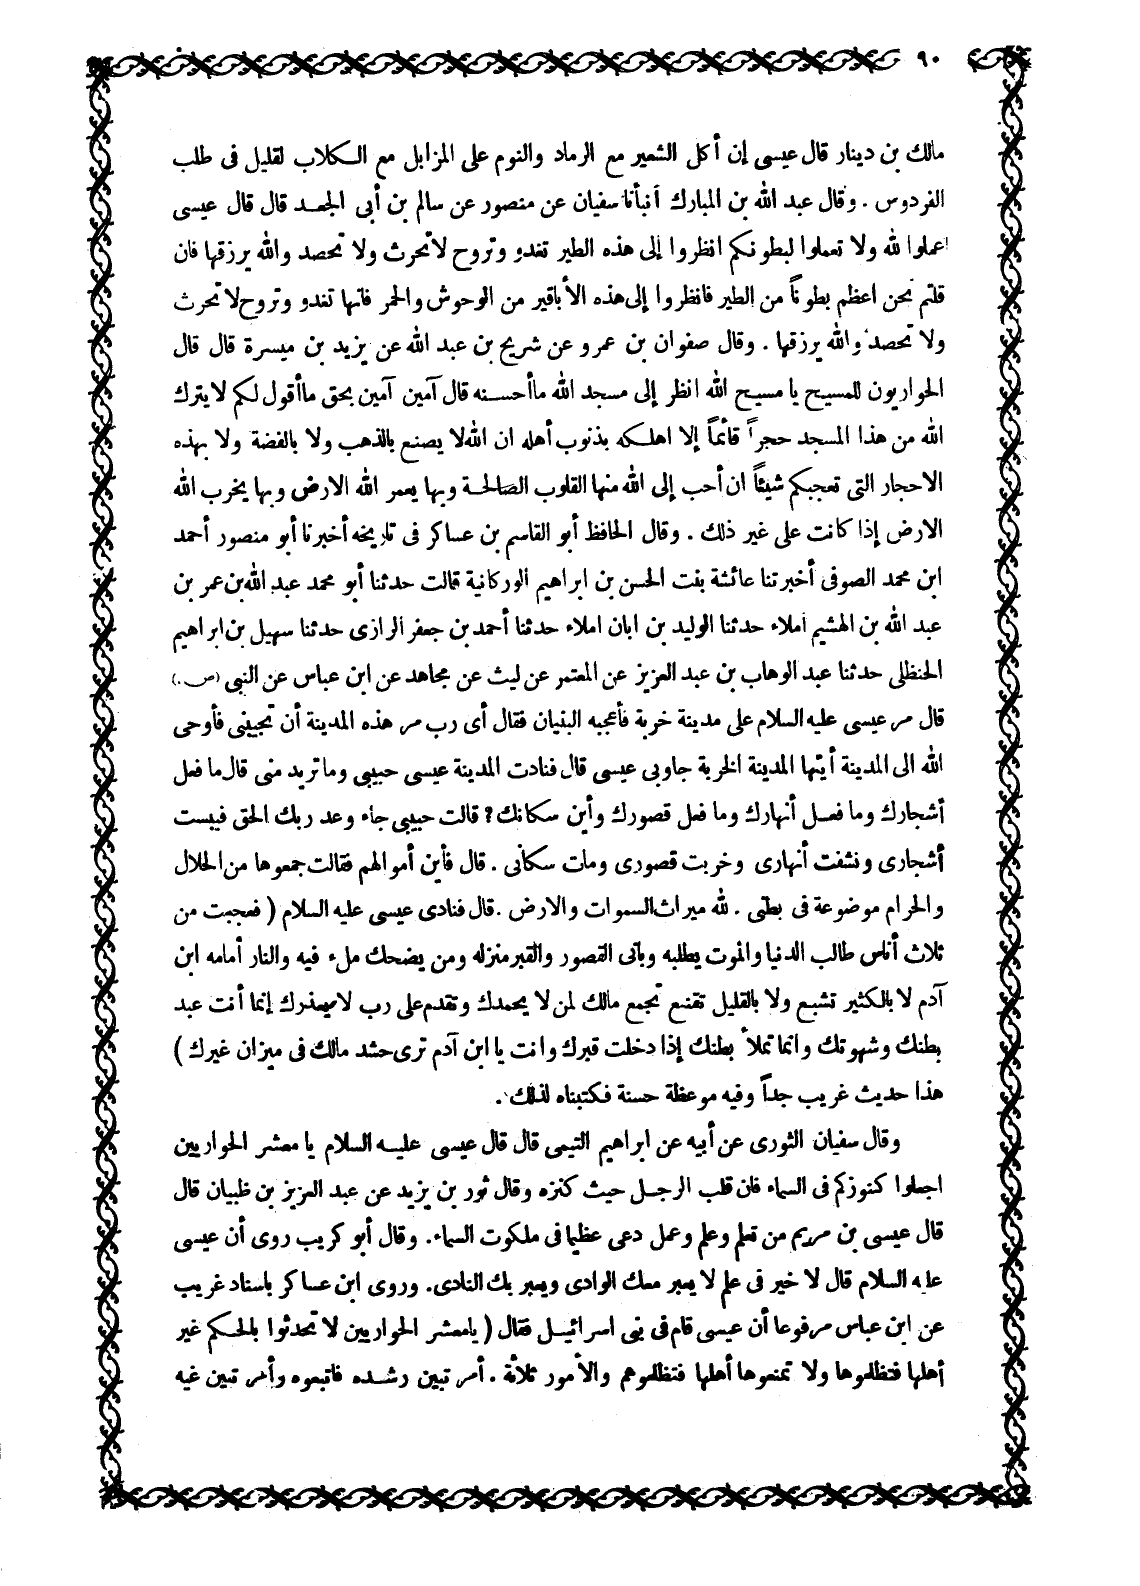 ٩٠
مالك بن دينار قال عيسى إن أكل الشعير مع الرماد والنوم على المزابل مع الكلاب لقليل فى طلب
الفردوس . وقال عبد الله بن المبارك أنبأنا سفيان عن منصور عن سالم بن أبى الجعد قال قال عيسى
اعملوا لله ولا تعملوا لبطونكم انظروا إلى هذه الطير تغدو وتروح لاتحرث ولا تحصد والله يرزقها فان
قلتم نحن اعظم بطوناً من الطير فانظروا إلى هذه الأباقير من الوحوش والحمر فانها تغدو وتروح لا تحرث
ولا تحصد والله يرزقها . وقال صفوان بن عمرو عن شريح بن عبد الله عن يزيد بن ميسرة قال قال
الحواريون للمسيح يا مسيح الله انظر إلى مسجد الله ماأحسنه قال آمين آمين بحق ماأقول لكم لا يترك
الله من هذا المسجد حجراً قائماً إلا اهلكه بذنوب أهله ان الله لا يصنع بالذهب ولا بالفضة ولا بهذه
الاحجار التى تعجبكم شيئاً ان أحب إلى الله منها القلوب الصالحة وبها يعمر الله الارض وبها يخرب الله
الارض إذا كانت على غير ذلك . وقال الحافظ أبو القاسم بن عساكر فى تاريخه أخبرنا أبو منصور أحمد
ابن محمد الصوفى أخبرتنا عائشة بنت الحسن بن ابراهيم الوركانية قالت حدثنا أبو محمد عبد الله بن عمر بن
عبد الله بن الهشيم املاء حدثنا الوليد بن ابان املاء حدثنا أحمد بن جعفر الرازى حدثنا سهيل بن ابراهيم
الحنظلى حدثنا عبد الوهاب بن عبد العزيز عن المعتمر عن ليث عن مجاهد عن ابن عباس عن النبى (ص.)
قال مر عيسى عليه السلام على مدينة خربة فأعجبه البنيان فقال أى رب مر هذه المدينة أن تجيبنى فأوحى
الله الى المدينة أيتها المدينة الخربة جاوبى عيسى قال فنادت المدينة عيسى حبيبى وما تريد منى قال ما فعل
أشجارك وما فعل أنهارك وما فعل قصورك وأين سكانك؟ قالت حبيبى جاء وعد ربك الحق فيبست
أشجارى ونشفت أنهارى وخربت قصورى ومات سكانى . قال فأين أموالهم فقالت جمعوها من الحلال
والحرام موضوعة فى بطنى . لله ميراث السموات والارض . قال فنادى عيسى عليه السلام ( فعجبت من
ثلاث أناس طالب الدنيا والموت يطلبه وبانى القصور والقبر منزله ومن يضحك ملء فيه والنار أمامه ابن
آدم لا بالكثير تشبع ولا بالقليل تقنع تجمع مالك لمن لا يحمدك وتقدم على رب لا يعذرك إنما أنت عبد
بطنك وشهوتك وانما تملأ بطنك إذا دخلت قبرك وانت يا ابن آدم ترى حشد مالك فى ميزان غيرك )
هذا حديث غريب جداً وفيه موعظة حسنة فكتبناه لذلك .
وقال سفيان الثورى عن أبيه عن ابراهيم التيمى قال قال عيسى عليه السلام يا معشر الحواريين
اجعلوا كنوزكم فى السماء فان قلب الرجل حيث كنزه وقال ثور بن يزيد عن عبد العزيز بن ظبيان قال
قال عيسى بن مريم من تعلم وعلم وعمل دعى عظيما فى ملكوت السماء . وقال أبو كريب روى أن عيسى
عليه السلام قال لا خير فى علم لا يعبر معك الوادى ويعبر بك النادى . وروى ابن عساكر باسناد غريب
عن ابن عباس مرفوعا أن عيسى قام فى بنى اسرائيل فقال ( يامعشر الحواريين لا تحدثوا بالحكم غير
أهلها فتظلموها ولا تمنعوها أهلها فتظلموهم والأمور ثلاثة . أمر تبين رشده فاتبعوه وأمر تبين غيه